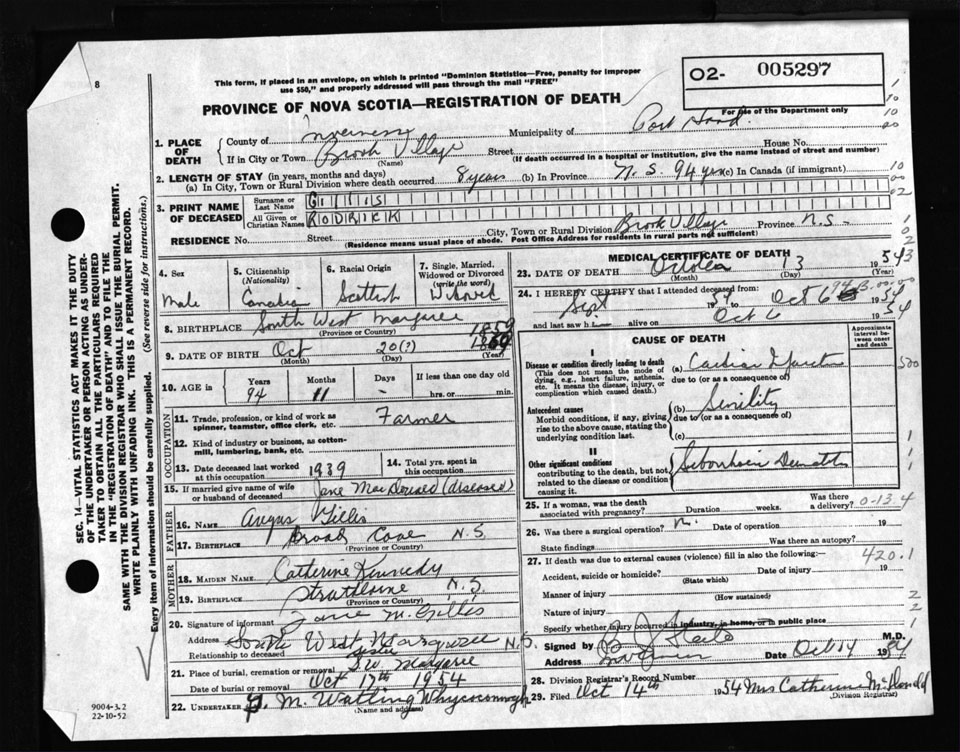 8
This form, if placed in an envelope, on which is printed "Dominion Statistics—Free, penalty for improper
use $50," and properly addressed will pass through the mail "FREE"
O2- 005297
For use of the Department only
PROVINCE OF NOVA SCOTIA—REGISTRATION OF DEATH
1. PLACE OF DEATH
County of Inverness Municipality of Port Hood
If in City or Town Brook Village Street House No.
(Name) (If death occurred in a hospital or institution, give the name instead of street and number)
2. LENGTH OF STAY (in years, months and days)
(a) In City, Town or Rural Division where death occurred 8 years (b) In Province N.S. 94 yrs (c) In Canada (if immigrant)
3. PRINT NAME OF DECEASED
Surname or Last Name GILLIS
All Given or Christian Names RODRICK
RESIDENCE No. Street City, Town or Rural Division Brook Village Province N.S.
(Residence means usual place of abode. Post Office Address for residents in rural parts not sufficient)
4. Sex Male
5. Citizenship (Nationality)
6. Racial Origin Scottish
7. Single, Married, Widowed or Divorced (write the word) Widowed
8. BIRTHPLACE South West Margaree
(Province or Country)
9. DATE OF BIRTH Oct 20(?) 1859
(Month) (Day) (Year)
10. AGE in Years 94 Months 11 Days - If less than one day old hrs. or min.
OCCUPATION
11. Trade, profession, or kind of work as spinner, teamster, office clerk, etc. Farmer
12. Kind of industry or business, as cotton-mill, lumbering, bank, etc.
13. Date deceased last worked at this occupation 1939
14. Total yrs. spent in this occupation
15. If married give name of wife or husband of deceased Jane MacDonald (diseased)
FATHER
16. NAME Angus Gillis
17. BIRTHPLACE Broad Cove N.S.
(Province or Country)
MOTHER
18. MAIDEN NAME Catherine Kennedy
19. BIRTHPLACE Strathlorne N.S.
(Province or Country)
20. Signature of informant Jane M. Gillis
Address South West Margaree N.S.
Relationship to deceased
21. Place of burial, cremation or removal S.W. Margaree
Date of burial or removal Oct 17th 1954
22. UNDERTAKER M. Watling Whycocomagh
(Name and address)
MEDICAL CERTIFICATE OF DEATH
23. DATE OF DEATH October 3 1954
(Month) (Day) (Year)
24. I HEREBY CERTIFY that I attended deceased from
Sept 1954 to Oct 6 1954
and last saw h alive on Oct 6 1954
CAUSE OF DEATH
Approximate interval between onset and death
I
Disease or condition directly leading to death
(This does not mean the mode of dying, e.g., heart failure, asthenia, etc. It means the disease, injury, or complication which caused death.)
(a) Cardiac
due to (or as a consequence of)
Antecedent causes
Morbid conditions, if any, giving rise to the above cause, stating the underlying condition last.
(b) Senility
due to (or as a consequence of)
(c)
II
Other significant conditions
contributing to the death, but not related to the disease or condition causing it.
25. If a woman, was the death associated with pregnancy? Duration weeks. Was there a delivery?
26. Was there a surgical operation? Date of operation 19
State findings Was there an autopsy?
27. If death was due to external causes (violence) fill in also the following:—
420.1
Accident, suicide or homicide? Date of injury 19
(State which)
Manner of injury
(How sustained)
Nature of injury
Specify whether injury occurred in industry, in home, or in public place
Signed by M.D.
Address Inverness Date Oct 14 1954
28. Division Registrar's Record Number
29. Filed Oct 14th 1954 Mrs Catherine McDonald
(Division Registrar)
SEC. 14—VITAL STATISTICS ACT MAKES IT THE DUTY
OF THE UNDERTAKER OR PERSON ACTING AS UNDER-
TAKER TO OBTAIN ALL THE PARTICULARS REQUIRED
IN THE "REGISTRATION OF DEATH" AND TO FILE THE
SAME WITH THE DIVISION REGISTRAR WHO SHALL ISSUE THE BURIAL PERMIT.
WRITE PLAINLY WITH UNFADING INK. THIS IS A PERMANENT RECORD.
Every item of information should be carefully supplied. (See reverse side for instructions.)
9004-3.2
22-10-52